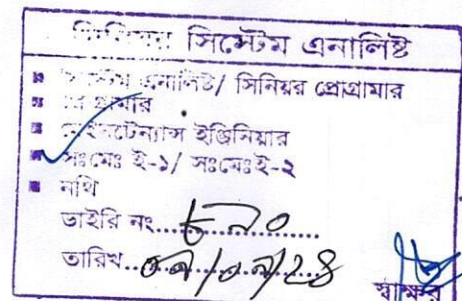 সিনিয়র সিস্টেম এনালিষ্ট
সিস্টেম এনালিষ্ট/ সিনিয়র প্রোগ্রামার
প্রোগ্রামার
মেইনটেন্যান্স ইঞ্জিনিয়ার
সঃমেঃ ই-১/ সঃমেঃই-২
নথি
ডাইরি নং......৮৯০......
তারিখ...
স্বাক্ষর